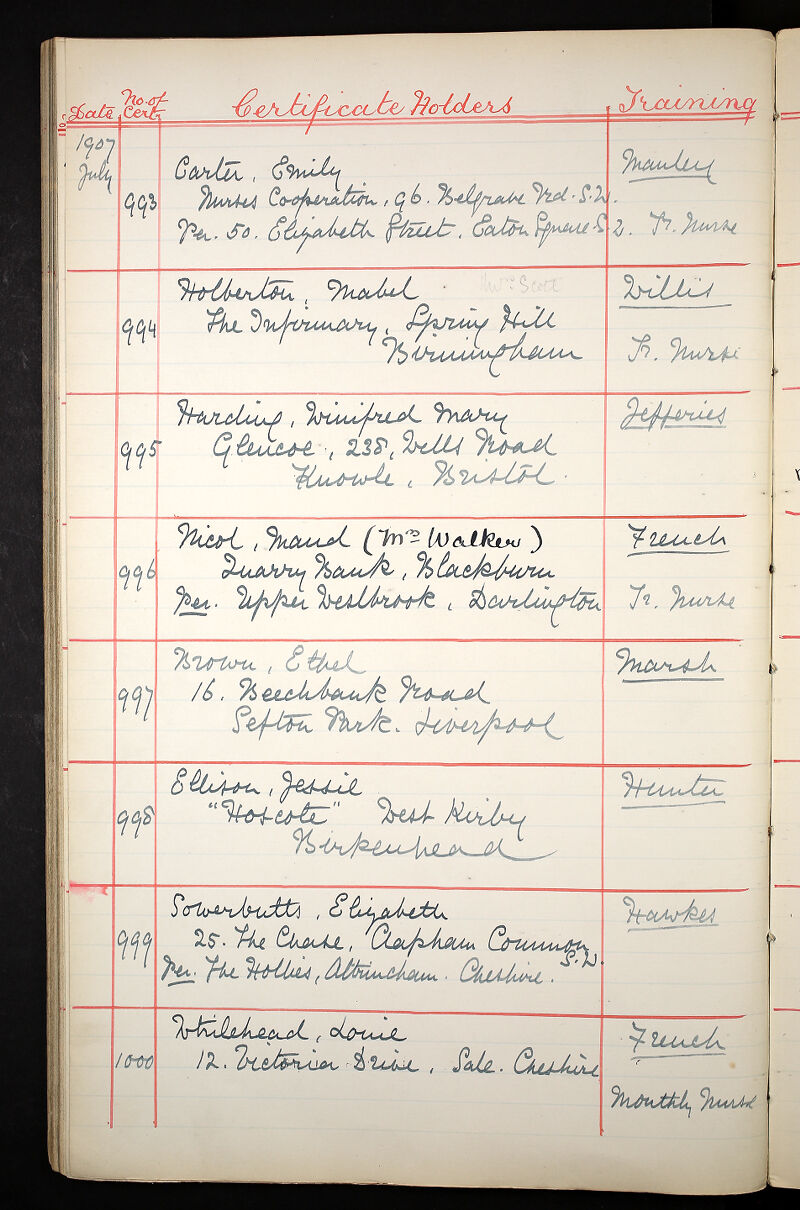 Date No. of Cert. Certificate Holders Training
1907
July
Carter, Emily Manley
993 Nurses Cooperation, 96. Belgrave Rd. S.W.
Per. 50. Elizabeth Street. Eaton Square S. Tr. Nurse
Holberton, Mabel Mrs Scott Willis
994 The Infirmary, Spring Hill
Birmingham Tr. Nurse
Harding, Winifred Mary Jefferies
995 Glencoe, 238, Wells Road
Knowle, Bristol.
Nicol, Maud (Mrs Walker) French
996 Quarry Bank, Blackburn
Per. Upper Westbrook, Darlington Tr. Nurse
Brown, Ethel Marsh
997 16. Beechbank Road
Sefton Park. Liverpool
Ellison, Jessie Hunter
998 "Hoscote" West Kirby
Birkenhead
Sowerbutts, Elizabeth Hawkes
999 25. The Chase, Clapham Common
S.W.
Per. The Hollies, Altrincham. Cheshire.
Whitehead, Louie French
1000 12. Victoria Drive, Sale. Cheshire
Monthly Nurse